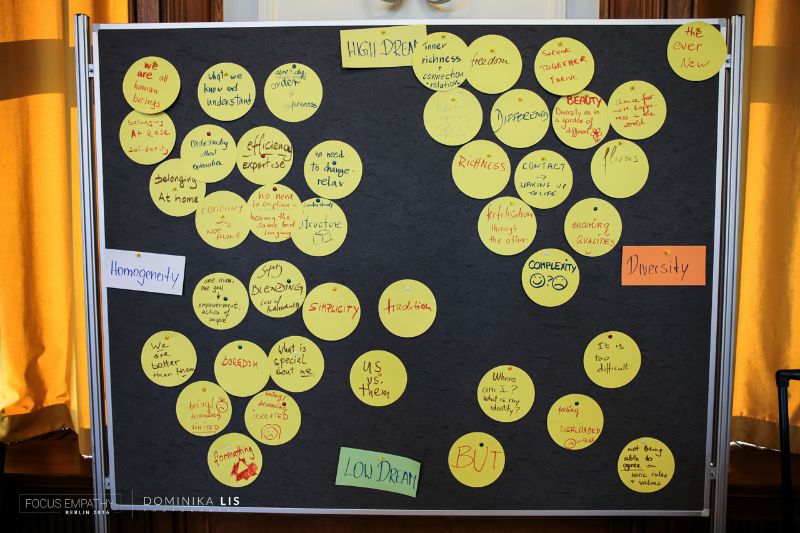 HIGH DREAM
inner
richness
+
connection
relation
freedom
SURVIVE
TOGETHER
THRIVE
the
ever
New
we
are all
human
beings
What we
know and
understand
order
DIFFERENCE
BEAUTY
Diversity as in
a garden of
different
chance for
more happi-
ness in the
world
belonging
At Ease
solidarity
Understanding
without
explanation
efficiency
expertise
no need
to
change-
relax
RICHNESS
CONTACT
→
WAKING UP
TO LIFE
flavors
belonging
At home
COMPANY
NOT
ALONE
no need
to explain-
hearing the
same bird
singing
structure
fertilisation
through
the other
sharing
QUALITIES
Homogeneity
COMPLEXITY
?
Diversity
one vision
one goal
empowerment,
action of
people
Safety
BLENDING
SIMPLICITY
tradition
We
are
better
than them
BOREDOM
What is
special
about me
US
vs.
them
Where
am I?
What is my
identity?
It is
too
difficult
being/
becoming
LIMITED
being/
becoming
ISOLATED
feeling
OVERLOADED
formatting
LOW DREAM
BUT
not being
able to
agree on
basic rules
+ values
FOCUS EMPATHY
BERLIN 2016
DOMINIKA LIS